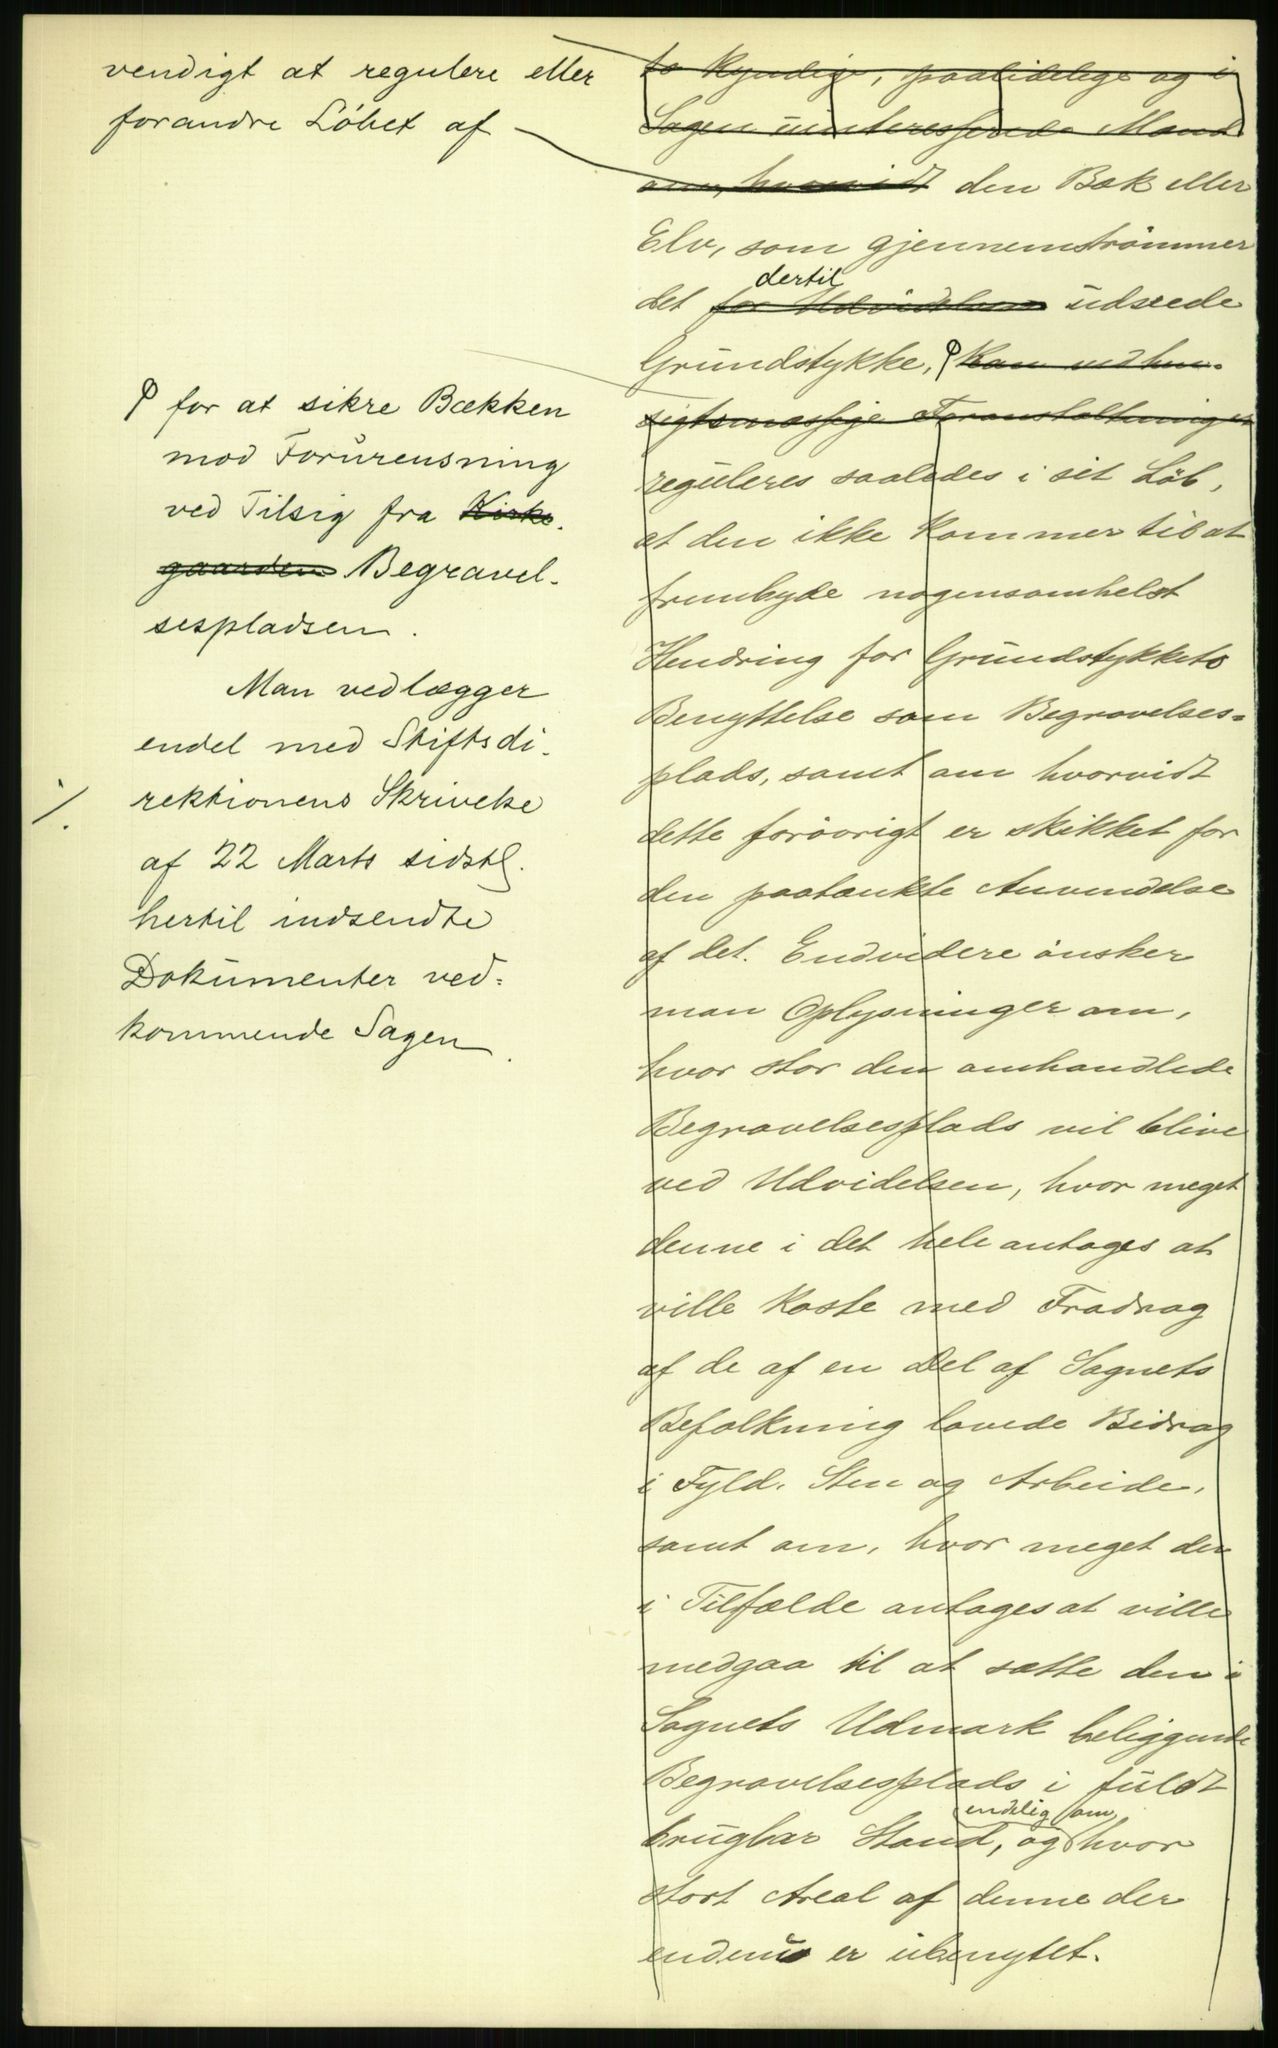 vendigt at regulere eller
forandre Löbet af
ꝓ for at sikre Bækken
mod Forurensning
ved Tilsig fra Kirke-
gaarden Begravel-
sespladsen.
Man vedlægger
endel med Stiftsdi-
rektionens Skrivelse
./.
af 22 Marts sidstl.
hertil indsendte
Dokumenter ved-
kommende Sagen.
to kyndige, paalidelige og i
Sagen uinteresserede Mænd
om, hvorvidt den Bæk eller
Elv, som gjennemströmmer
dertil
det for Udvidelsen udseede
Grundstykke, ꝓ kan ved hen-
sigtsmæssige Foranstaltninger
reguleres saaledes i sit Löb,
at den ikke kommer til at
frembyde nogensomhelst
Hindring for Grundstykkets
Benyttelse som Begravelses-
plads, samt om hvorvidt
dette forövrigt er skikket for
den paatænkte Anvendelse
af det. Endvidere önsker
man Oplysninger om,
hvor stor den omhandlede
Begravelsesplads vil blive
ved Udvidelsen, hvor meget
denne i det hele antages at
ville koste med Fradrag
af de af en Del af Sognets
Befolkning lovede Bidrag
i Fyld, Sten og Arbeide,
samt om, hvor meget der
i Tilfælde antages at ville
medgaa til at sætte den i
Sognets Udmark beliggende
Begravelsesplads i fuldt
endelig om
brugbar Stand, og hvor
stort Areal af denne der
endnu er ubenyttet.